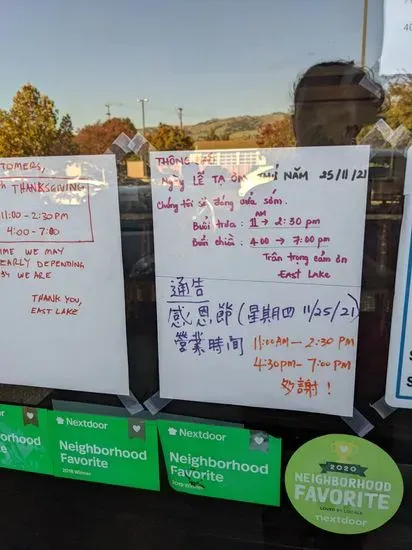 TOMERS,
THANKSGIVING
11:00 - 2:30PM
4:00 - 7:00
ME WE MAY
EARLY DEPENDING
WE ARE
THANK YOU,
EAST LAKE
THÔNG
Ngày LỄ TẠ ƠN THỨ NĂM 25/11/21
Chúng tôi sẽ đóng cửa sớm.
AM
Buổi trưa : 11 → 2:30 pm
Buổi chiều : 4:00 → 7:00 pm
Trân trọng cảm ơn
EAST LAKE
通告
感恩節 (星期四 11/25/21)
營業時間 11:00AM — 2:30 PM
4:30PM - 7:00 PM
多謝!
Nextdoor
Neighborhood
Favorite
Nextdoor
Neighborhood
Favorite
2018 Winner
Nextdoor
Neighborhood
Favorite
2019 Winner
2020
NEIGHBORHOOD
FAVORITE
LOVED BY LOCALS
nextdoor